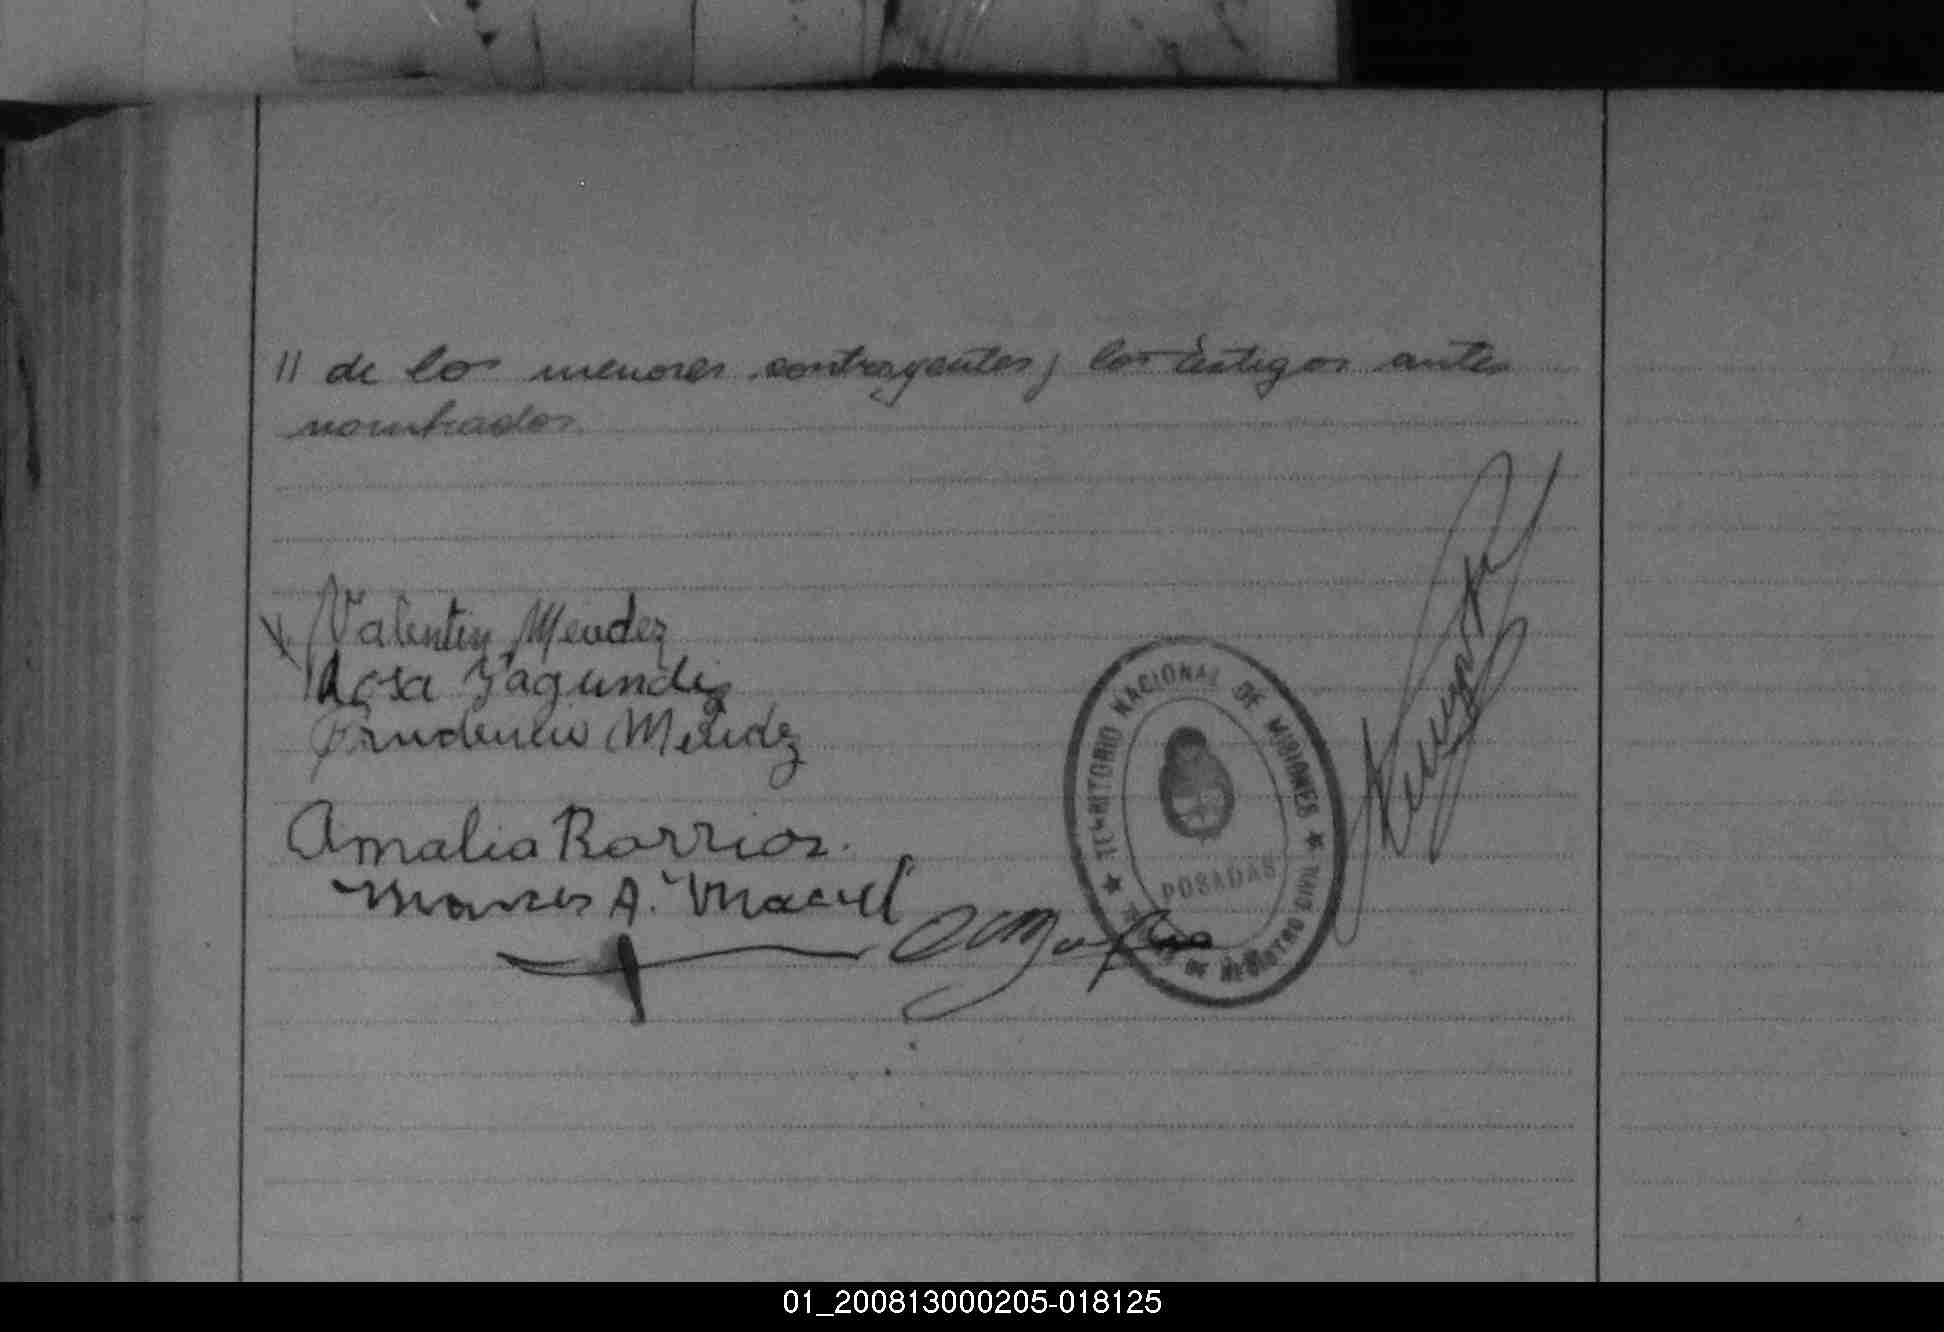 // de los menores contrayentes, los testigos antes
nombrados.
Valentin Mendez
Rosa Fagundez
Prudencio Mendez
Amalia Barrios.
A. Maciel
TERRITORIO NACIONAL DE MISIONES
POSADAS
DE REGISTRO
01_200813000205-018125